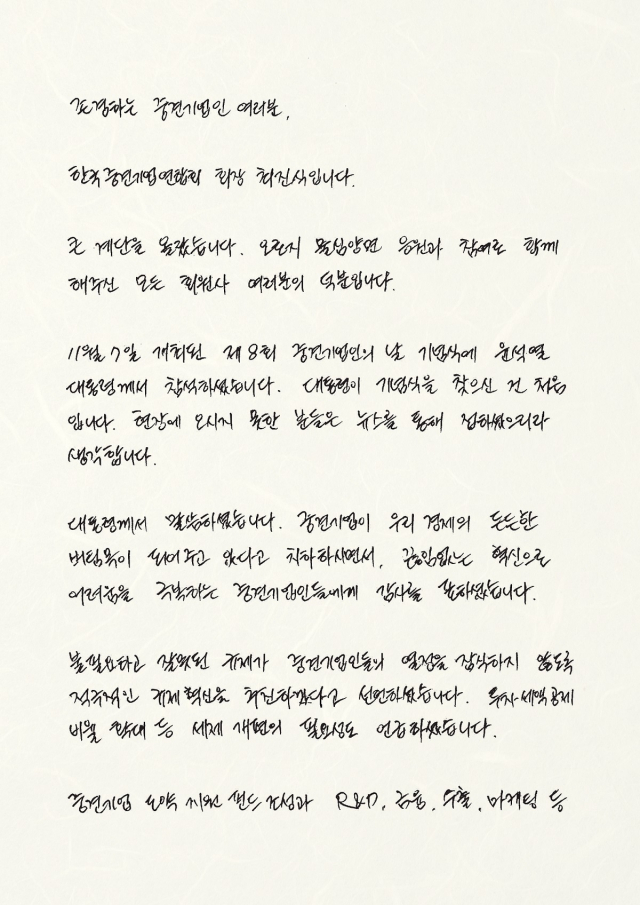 존경하는 중견기업인 여러분,
한국중견기업연합회 회장 최진식입니다.
큰 계단을 올랐습니다. 오로지 물심양면 응원과 참여로 함께
해주신 모든 회원사 여러분의 덕분입니다.
11월 7일 개최된 제8회 중견기업인의 날 기념식에 윤석열
대통령께서 참석하셨습니다. 대통령이 기념식을 찾으신 건 처음
입니다. 현장에 오시지 못한 분들은 뉴스를 통해 접하셨으리라
생각합니다.
대통령께서 말씀하셨습니다. 중견기업이 우리 경제의 든든한
버팀목이 되어주고 있다고 치하하시면서, 끊임없는 혁신으로
어려움을 극복하는 중견기업인들에게 감사를 표하셨습니다.
불필요하고 잘못된 규제가 중견기업인들의 열정을 잠식하지 않도록
적극적인 규제혁신을 추진하겠다고 선언하셨습니다. 투자세액공제
비율 확대 등 세제 개편의 필요성도 언급하셨습니다.
중견기업 도약 지원 펀드 조성과 R&D, 금융, 수출, 마케팅 등